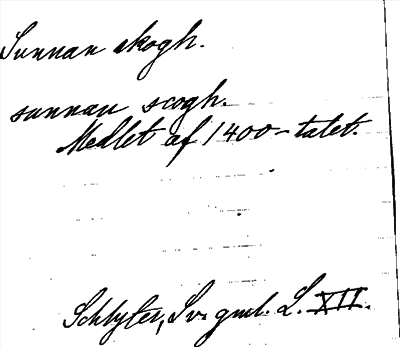 Sunnan skogh.
sunnan scogh.
Medlet af 1400-talet.
Schlyter, Sv. gml. L. XII.